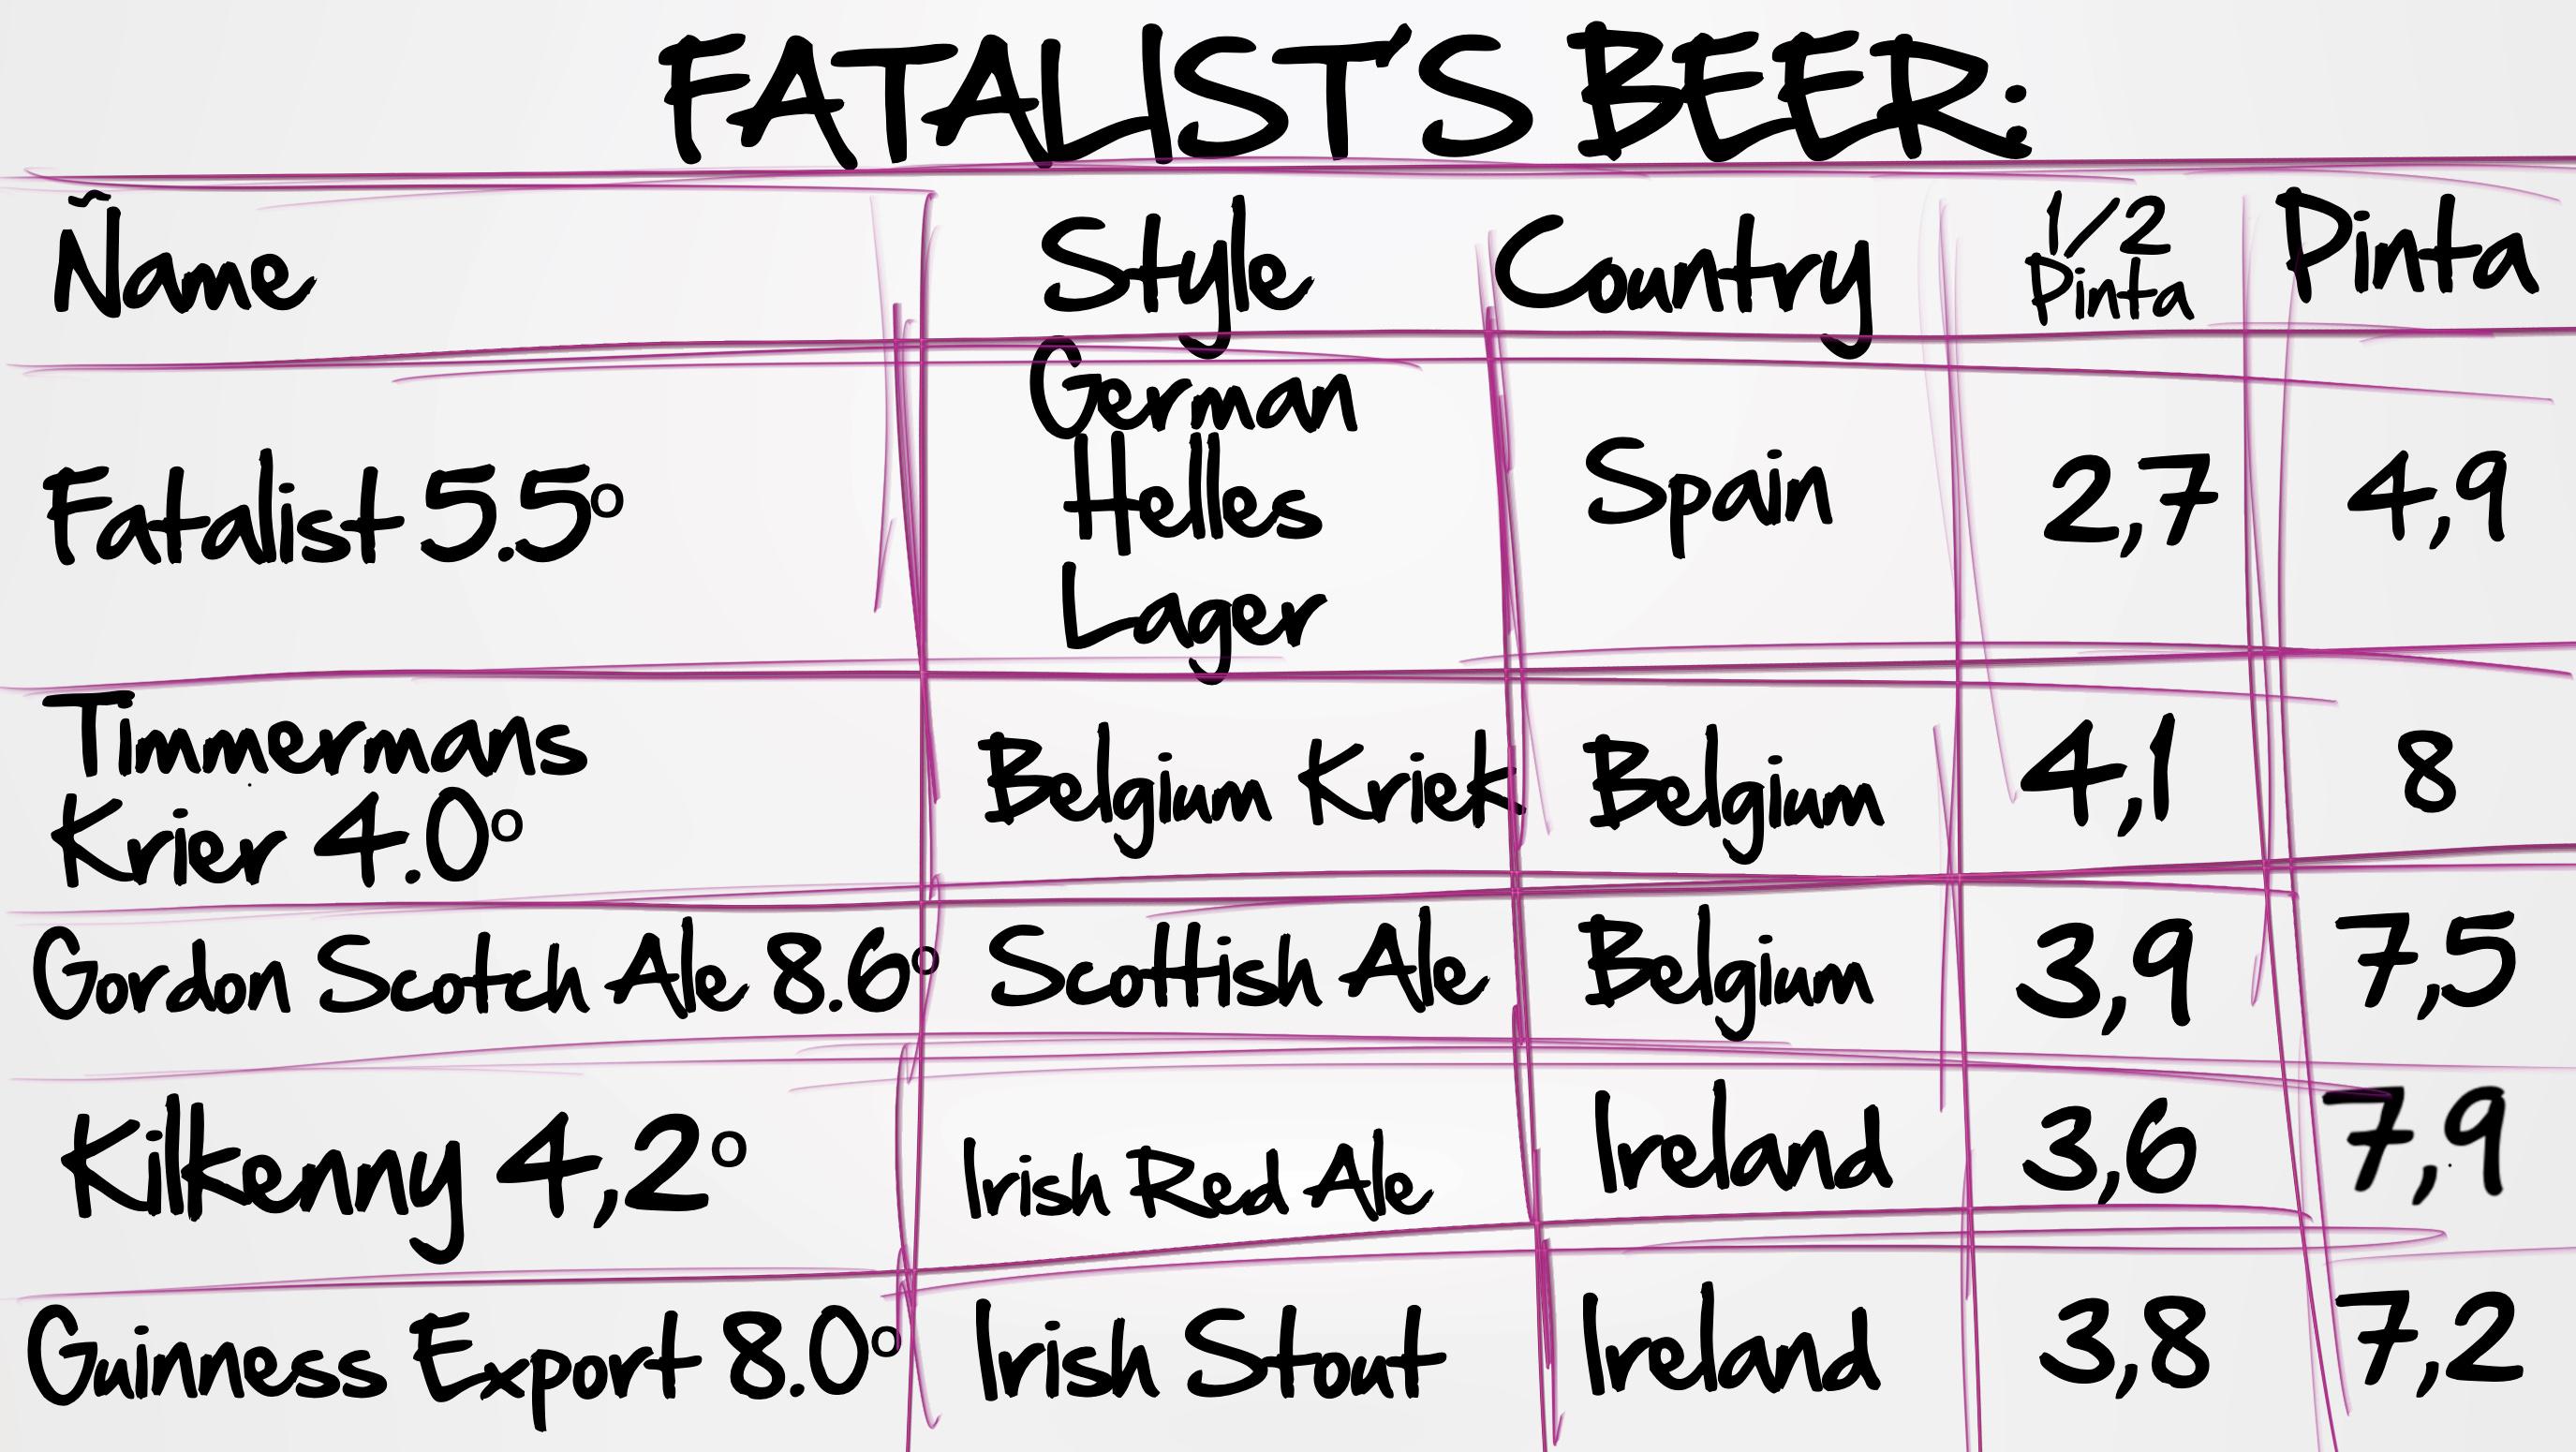 FATALIST'S BEER:
Ñame Style Country 1/2 Pinta Pinta
Fatalist 5.5º German Helles Lager Spain 2,7 4,9
Timmermans Krier 4.0º Belgium Kriek Belgium 4,1 8
Gordon Scotch Ale 8.6º Scottish Ale Belgium 3,9 7,5
Kilkenny 4,2º Irish Red Ale Ireland 3,6 7,9
Guinness Export 8.0º Irish Stout Ireland 3,8 7,2